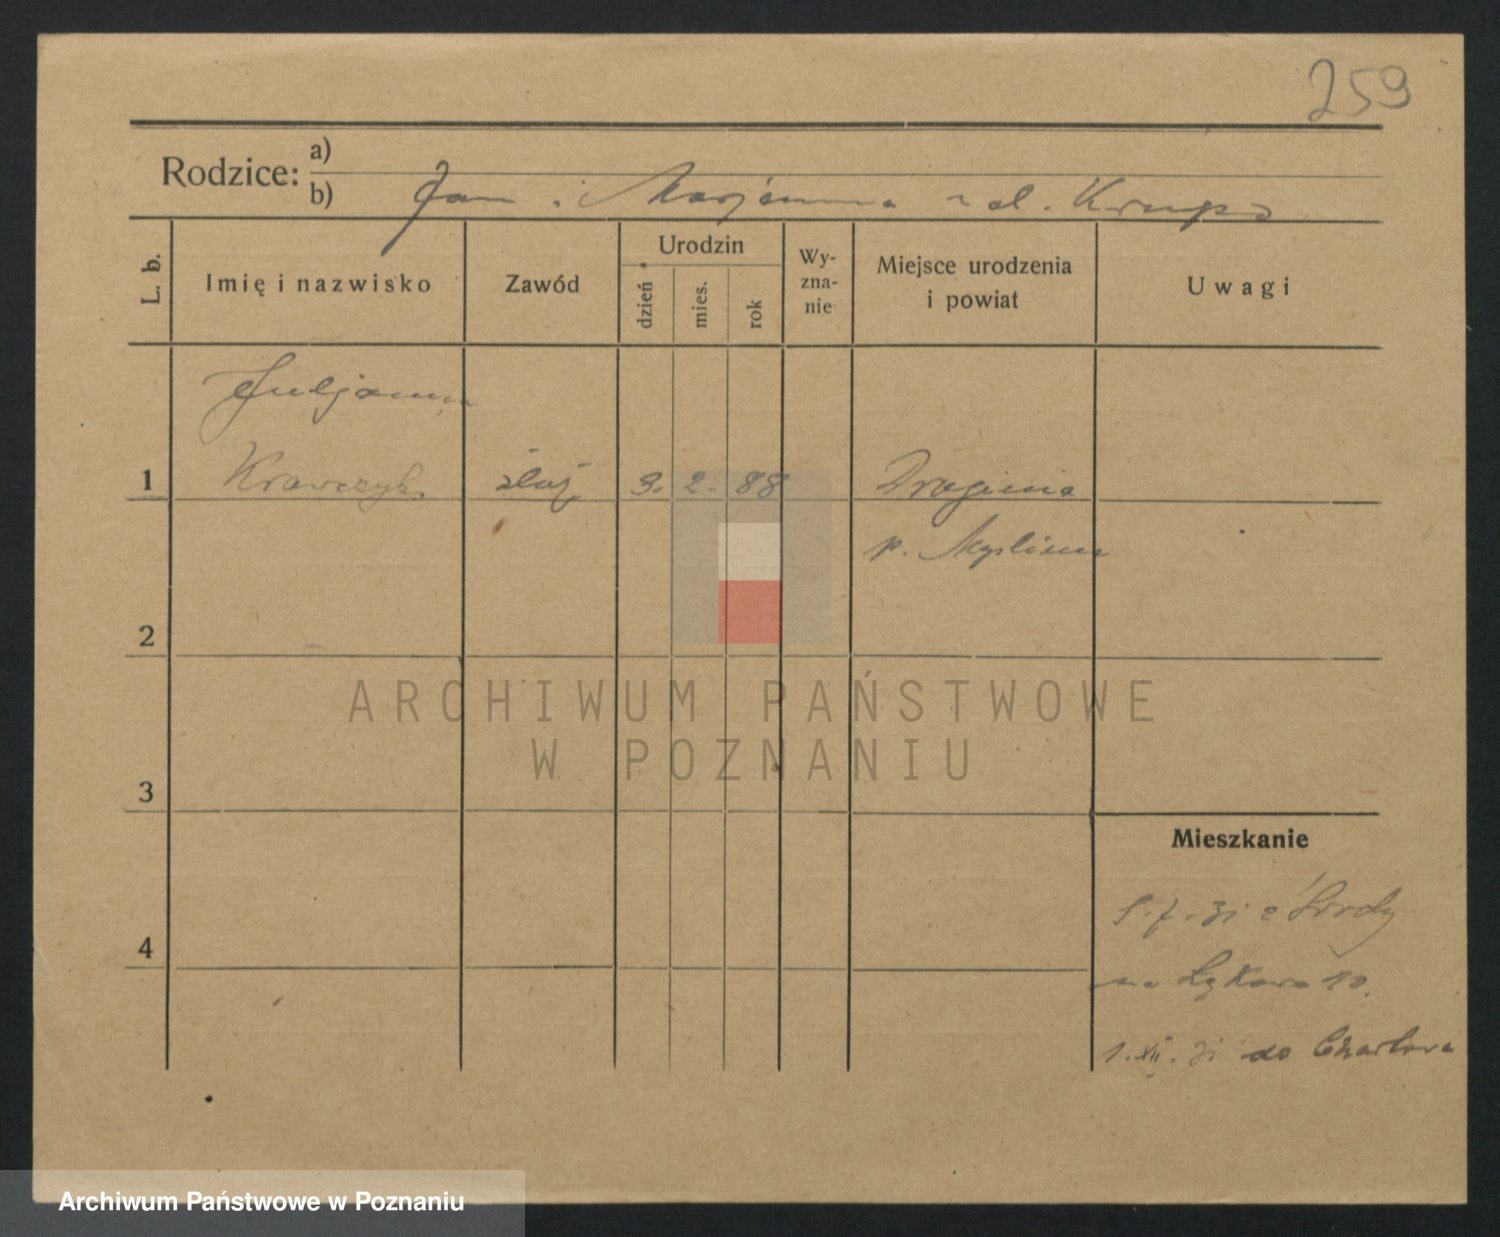 259
Rodzice: a)
b) Jan i Marjanna z d. Krupa
L. b.
Imię i nazwisko
Zawód
Urodzin
dzień
mies.
rok
Wy-
zna-
nie
Miejsce urodzenia
i powiat
Uwagi
Juljanna
1 Krawczyk służ. 3. 2. 88 Draginia
p. Myślenice
2
ARCHIWUM PAŃSTWOWE
W POZNANIU
3
Mieszkanie
7. 31 z Środy
4
na Łąkowa 10.
1. XII. 31 do
Archiwum Państwowe w Poznaniu